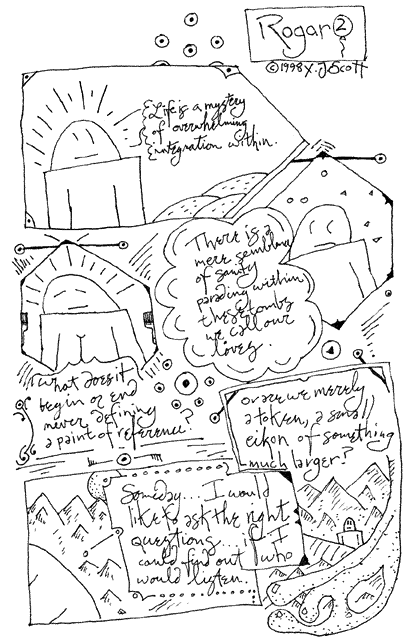 Rogar 2
©1998 X. J Scott
Life is a mystery
of overwhelming
integration within.
There is a
mere semblance
of sanity
parading within
these tombs
we call our
lives.
What does it
begin or end
never defining
a point of reference?
Or are we merely
a token, a small
eikon of something
much larger?
Someday... I would
like to ask the right
questions... if I
could find out who
would listen.